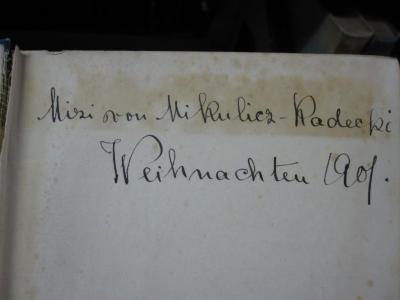 Mizi von Mikulicz-Radecki
Weihnachten 1901.